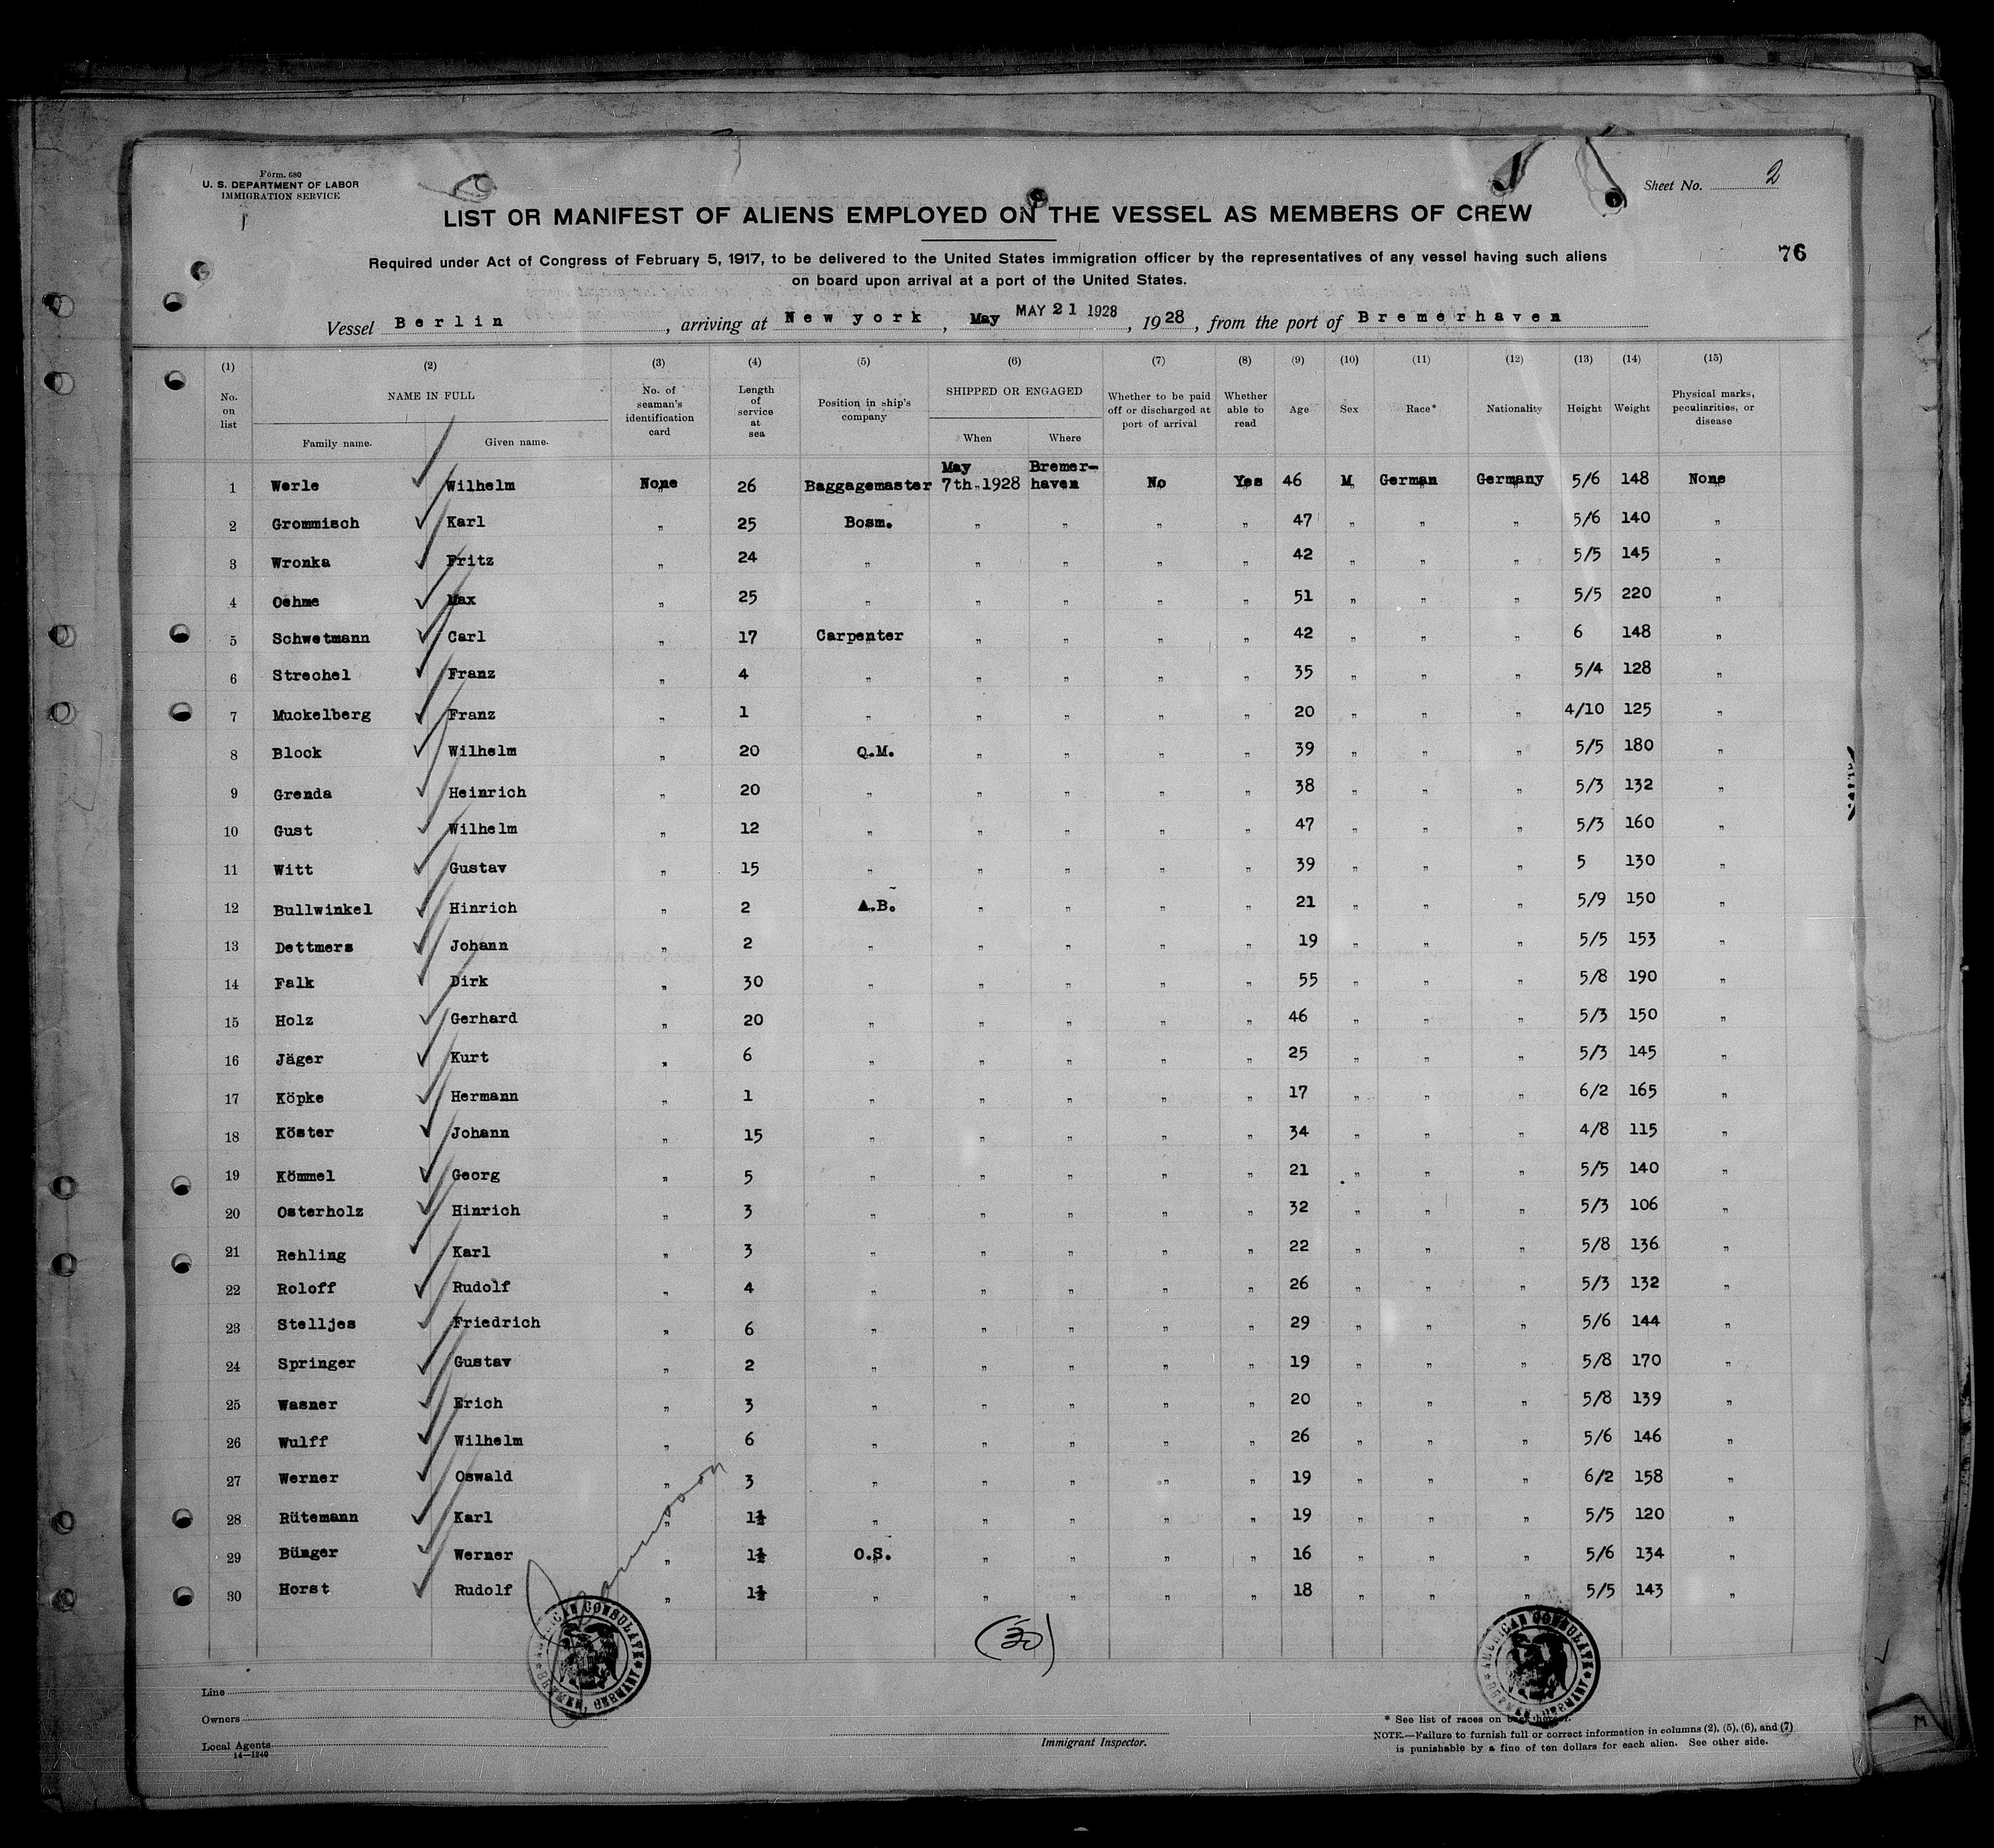 Form. 680
U. S. DEPARTMENT OF LABOR
IMMIGRATION SERVICE
Sheet No. 2
LIST OR MANIFEST OF ALIENS EMPLOYED ON THE VESSEL AS MEMBERS OF CREW
76
Required under Act of Congress of February 5, 1917, to be delivered to the United States immigration officer by the representatives of any vessel having such aliens
on board upon arrival at a port of the United States.
Vessel Berlin, arriving at New york, May MAY 21 1928, 1928, from the port of Bremerhaven
(1) (2) (3) (4) (5) (6) (7) (8) (9) (10) (11) (12) (13) (14) (15)
No. on list NAME IN FULL Family name. Given name. No. of seaman's identification card Length of service at sea Position in ship's company SHIPPED OR ENGAGED When Where Whether to be paid off or discharged at port of arrival Whether able to read Age Sex Race* Nationality Height Weight Physical marks, peculiarities, or disease
1 Werle Wilhelm None 26 Baggagemaster May 7th.1928 Bremer-haven No Yes 46 M German Germany 5/6 148 None
2 Grommisch Karl " 25 Bosm. " " " " 47 " " " 5/6 140 "
3 Wronka Fritz " 24 " " " " " 42 " " " 5/5 145 "
4 Oehme Max " 25 " " " " " 51 " " " 5/5 220 "
5 Schwetmann Carl " 17 Carpenter " " " " 42 " " " 6 148 "
6 Strechel Franz " 4 " " " " " 35 " " " 5/4 128 "
7 Muckelberg Franz " 1 " " " " " 20 " " " 4/10 125 "
8 Block Wilhelm " 20 Q.M. " " " " 39 " " " 5/5 180 "
9 Grenda Heinrich " 20 " " " " " 38 " " " 5/3 132 "
10 Gust Wilhelm " 12 " " " " " 47 " " " 5/3 160 "
11 Witt Gustav " 15 " " " " " 39 " " " 5 130 "
12 Bullwinkel Hinrich " 2 A.B. " " " " 21 " " " 5/9 150 "
13 Dettmers Johann " 2 " " " " " 19 " " " 5/5 153 "
14 Falk Dirk " 30 " " " " " 55 " " " 5/8 190 "
15 Holz Gerhard " 20 " " " " " 46 " " " 5/3 150 "
16 Jäger Kurt " 6 " " " " " 25 " " " 5/3 145 "
17 Köpke Hermann " 1 " " " " " 17 " " " 6/2 165 "
18 Köster Johann " 15 " " " " " 34 " " " 4/8 115 "
19 Kömmel Georg " 5 " " " " " 21 " " " 5/5 140 "
20 Osterholz Hinrich " 3 " " " " " 32 " " " 5/3 106 "
21 Rehling Karl " 3 " " " " " 22 " " " 5/8 136 "
22 Roloff Rudolf " 4 " " " " " 26 " " " 5/3 132 "
23 Stelljes Friedrich " 6 " " " " " 29 " " " 5/6 144 "
24 Springer Gustav " 2 " " " " " 19 " " " 5/8 170 "
25 Wasner Erich " 3 " " " " " 20 " " " 5/8 139 "
26 Wulff Wilhelm " 6 " " " " " 26 " " " 5/6 146 "
27 Werner Oswald " 3 " " " " " 19 " " " 6/2 158 "
28 Rütemann Karl " 1½ " " " " " 19 " " " 5/5 120 "
29 Bünger Werner " 1½ O.S. " " " " 16 " " " 5/6 134 "
30 Horst Rudolf " 1½ " " " " " 18 " " " 5/5 143 "
(30)
AMERICAN CONSULATE BREMEN, GERMANY
AMERICAN CONSULATE BREMEN, GERMANY
Line
Owners
Local Agents
14—1240
Immigrant Inspector.
* See list of races on back hereof.
NOTE.—Failure to furnish full or correct information in columns (2), (5), (6), and (7)
is punishable by a fine of ten dollars for each alien. See other side.
M